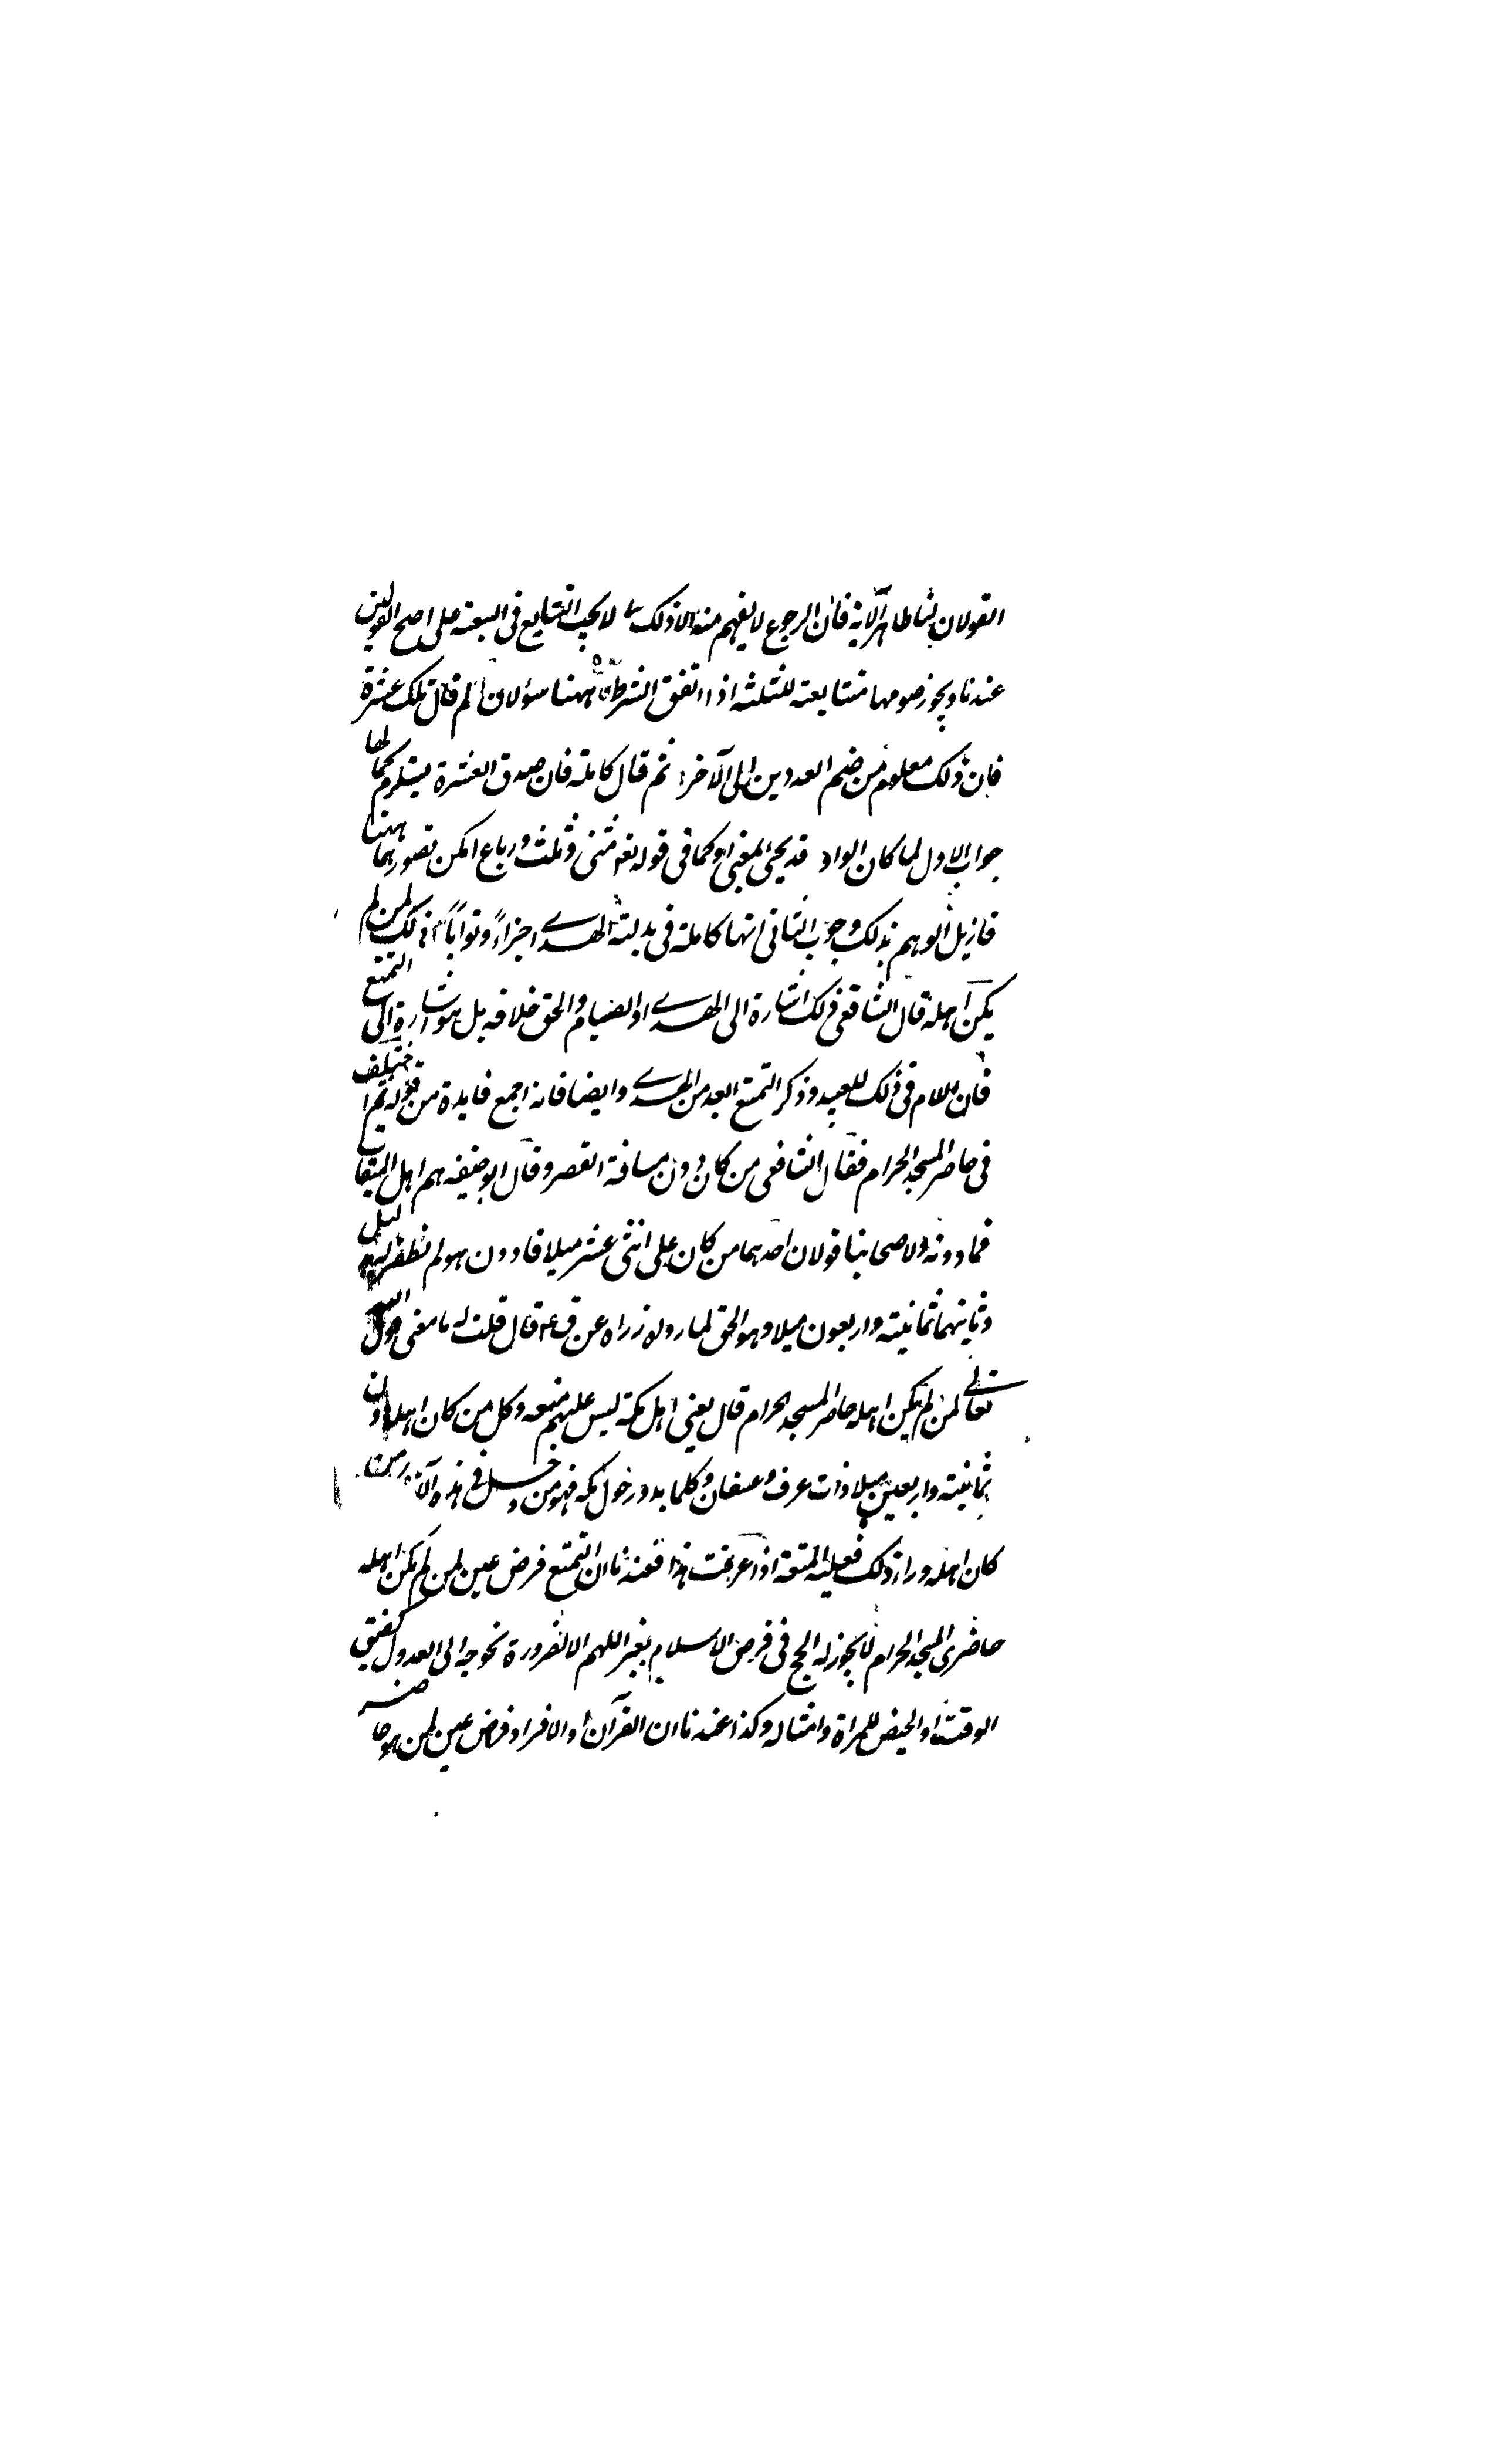 القولان لنا ظاهر الآية فان الرجوع لا يفهم منه الا ذلك لا يجب التتابع فى السبعة على اصح القولين
عندنا ويجوز صومها متتابعة للثلثة اذا اتفق الشرط ههنا سؤلان لم قال تلك عشرة
فان ذلك معلوم من ضم العددين الى الآخر ثم قال كاملة فان صدق العشرة يستلزم كمالها
جواب الاول لما كان الواو قد يجئ بمعنى او كما فى قوله تعه مثنى وثلث ورباع امكن تصورها ههنا
فازيل الوهم بذلك وجواب الثانى انها كاملة فى بدلية الهدى اجزاءً وثواباً ذلك لمن لم
يكن اهله قال الشافعى ذلك اشارة الى الهدى او الصيام والحق خلافه بل هو اشارة الى التمتع
فان اللام فى ذلك للبعيد وذكر التمتع ابعد من الهدى وايضا فانه اجمع فايدة من غيره ثم اختلف
فى حاضر المسجد الحرام فقال الشافعى من كان دون مسافة القصر وقال ابو حنيفه هم اهل الميقات
فما دونه ولاصحابنا قولان احدهما من كان على اثنى عشر ميلا فما دون هو لم نظفر له بدليل
وثانيهما ثمانية واربعون ميلا وهو الحق لما رواه زراه عن ق ع قال قلت له ما معنى قول الله
تعالى لمن لم يكن اهله حاضر المسجد الحرام قال يعنى اهل مكة ليس عليهم متعه وكل من كان اهله دون
ثمانية واربعين ميلا ذات عرق وعسفان وكلما يدور حول مكه فهو من دخل فى هذه الآية ومن
كان اهله وراء ذلك فعليه المتعة اذا عرفت هذا فعندنا ان التمتع فرض عين لمن لم يكن اهله
حاضرى المسجد الحرام لا يجوز له الحج فى فرض الاسلام بغير اللهم الا لضرورة تحوجه الى العدول كضيق
الوقت او الحيض للمراة وامثاله وكذا عندنا ان القرآن او الافراد فرض عين لمن هو حاضر